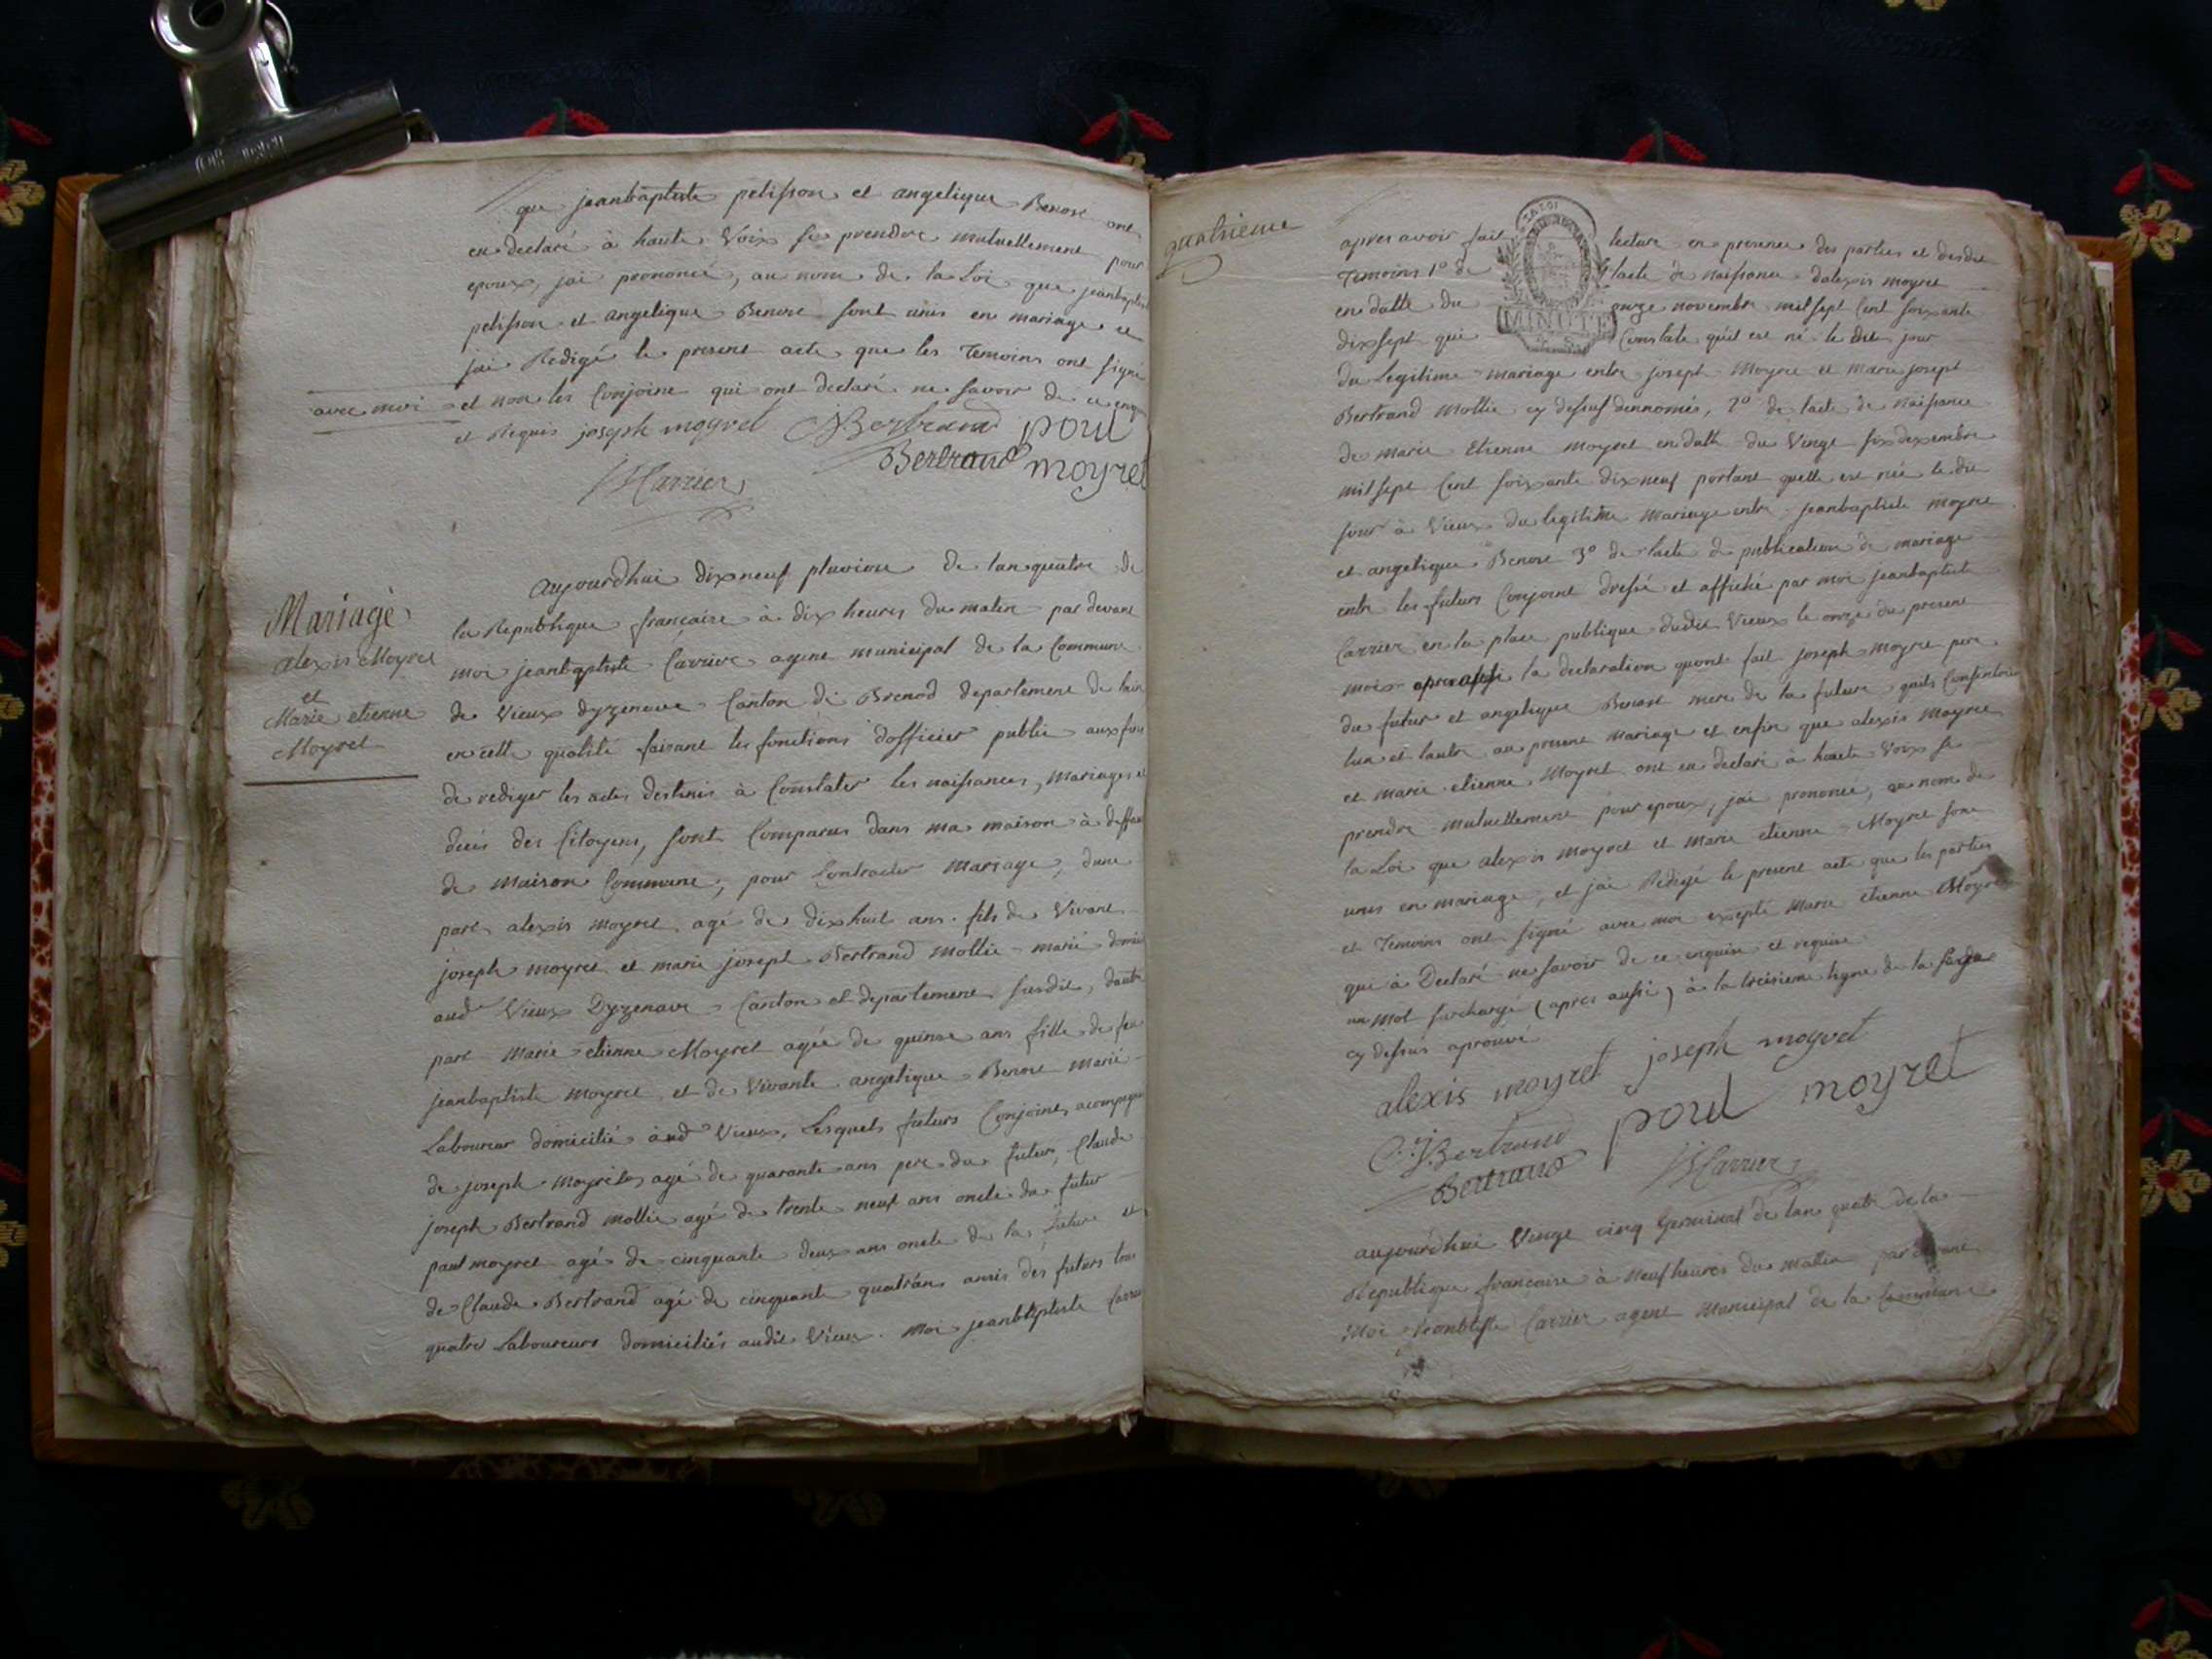 que jeanbaptiste pelisson et angelique Benose ont
en declaré à haute Voix se prendre mutuellement pour
epoux, jai prononcé, au nom de la Loi que jeanbaptiste
pelisson et angelique Benose sont unis en mariage et
jai Redigé le present acte que les Temoins ont signé
avec moi et non les Conjoint qui ont declaré ne savoir de ce enq
et Requis joseph moyret CJBertrand poul
Bertrand moyret
JBCarrier
Mariage
alexis Moyret
et
Marie etienne
Moyret
aujourdhui dixneuf pluviou de lan quatre de
la Republique francaire à dix heures du matin par devant
moi jeanbaptiste Carrier agent municipal de la Commune
de Vieux dyzenave Canton de Brenod departement de lain
en cette qualité faisant les fonctions dofficier public aux fins
de rediger les actes destinés à Constater les naissances, mariages et
decés des Citoyens, sont Comparus dans ma maison à deffaut
de Maison Commune, pour Contracter Mariage, dune
part alexis moyret agé de dixhuit ans fils de Vivant
joseph moyret et marie joseph Bertrand Mollie marié domici
aud Vieux Dyzenave Canton et departement susdit, dautre
part Marie etienne Moyret agée de quinse ans fille de feu
jeanbaptiste moyret et de Vivante angelique Benose marié
Laboureur domicilié aud Vieux, Lesquels futurs Conjoint, acompagn
de joseph Moyret agé de quarante ans pere du futur, Claude
joseph Bertrand mollie agé de trente neuf ans oncle du futur
paul moyret agé de cinquante deux ans oncle de la future et
de Claude Bertrand agé de cinquante quatre ans amis des futurs tous
quatre Laboureurs domiciliés audit Vieux. Moi jeanbptiste Carrier
quatrieme
apres avoir fait lecture en presence des parties et desdit
Temoins 1° de lacte de naissance dalexis moyret
en datte du onze novembre mil sept Cent soixante
MINUTE
dixsept qui Constate quil est né le dit jour
du Legitime mariage entre joseph Moyret et marie joseph
Bertrand Mollie cy dessus dennomés, 2° de lacte de naissance
de marie Etienne moyret en datte du Vingt six dexembre
mil sept Cent soixante dixneuf portant quelle est née le dit
jour à Vieux du legitime mariage entre jeanbaptiste moyret
et angelique Benose 3° de lacte de publication de mariage
entre les futurs Conjoint dressé et affiché par moi jeanbaptiste
Carrier en la place publique dudit Vieux le onze du present
mois apres aussi la declaration quont fait joseph moyret pere
du futur et angelique Benose mere de la future quils Consentoient
lun et lautre au present mariage et enfin que alexis moyret
et marie etienne Moyret ont en declaré à haute Voix se
prendre mutuellement pour epoux, jai prononcé, au nom de
la Loi que alexis moyret et marie etienne Moyret sont
unis en mariage, et jai Redigé le present acte que les parties
et Temoins ont signé avec moi excepté Marie etienne Moyret
qui à Declaré ne savoir de ce enquise et requise
un mot surchargé (apres aussi) à la treisieme ligne de la page
cy dessus aprouvé
alexis moyret joseph moyret
CJBertrand poul moyret
Bertrand JBCarrier
aujourdhui Vingt cinq Germinal de lan quatre de la
Republique francaise à neuf heures du matin par devant
Moi jeanbtiste Carrier agent Municipal de la Commune